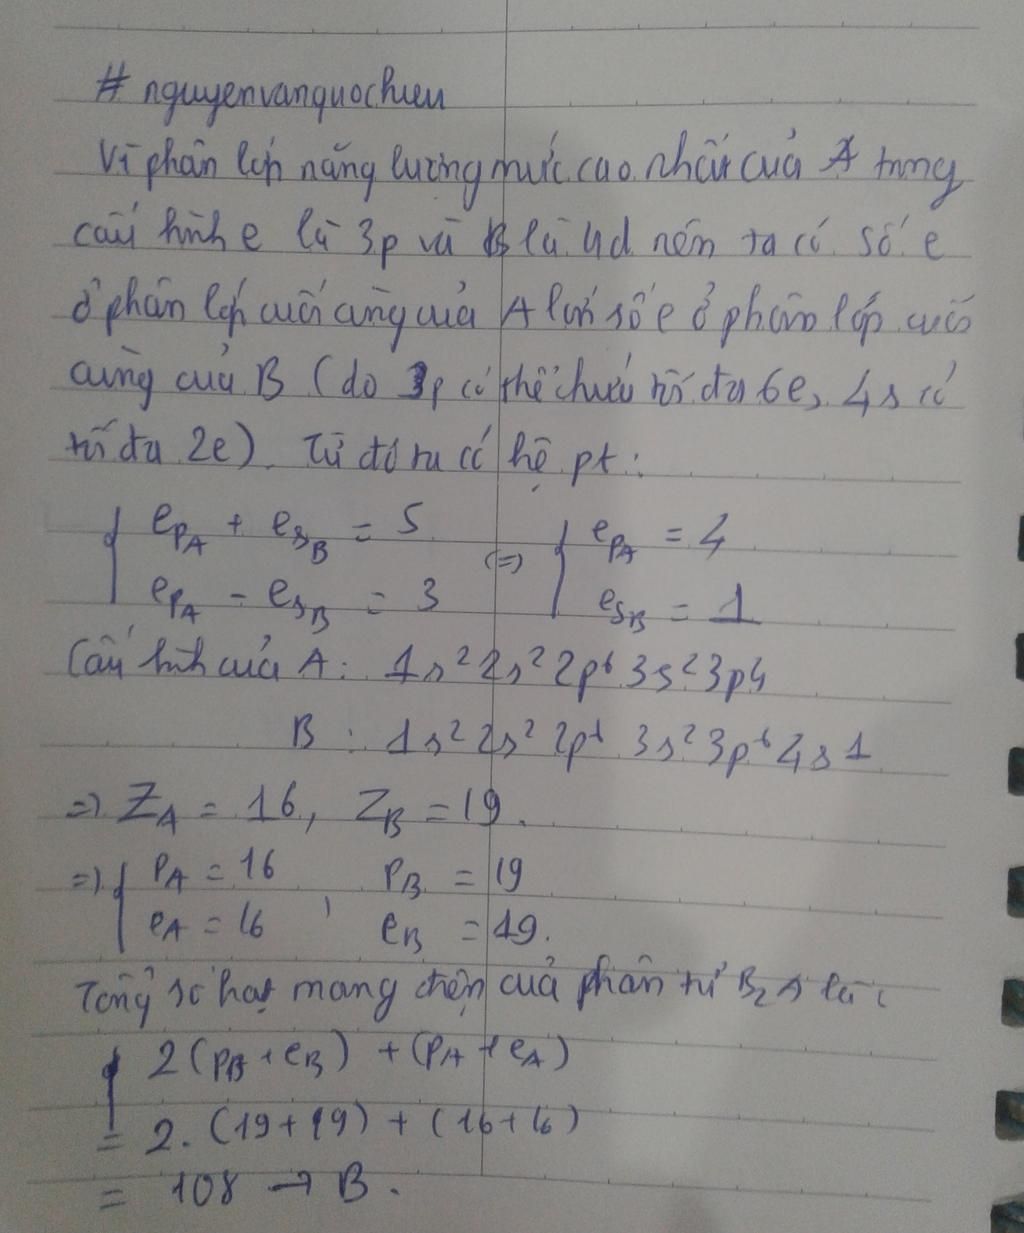 # nguyenvanquochieu
Vì phân lớp năng lượng mức cao nhất của A trong
cấu hình e là 3p và B là 4s nên ta có số e
ở phân lớp cuối cùng của A lớn số e ở phân lớp cuối
cùng của B (do 3p có thể chứa tối đa 6e, 4s có
tối đa 2e). Từ đó ta có hệ pt:
{ e_{p_A} + e_{s_B} = 5 (=) { e_{p_A} = 4
e_{p_A} - e_{s_B} = 3 e_{s_B} = 1
Cấu hình của A: 1s² 2s² 2p⁶ 3s² 3p4
B: 1s² 2s² 2p⁶ 3s² 3p⁶ 4s1
=) Z_A = 16, Z_B = 19.
=) { P_A = 16 P_B = 19
e_A = 16 , e_B = 19.
Tổng số hạt mang điện của phân tử B₂A là:
2(P_B + e_B) + (P_A + e_A)
= 2. (19+19) + (16+16)
= 108 → B.